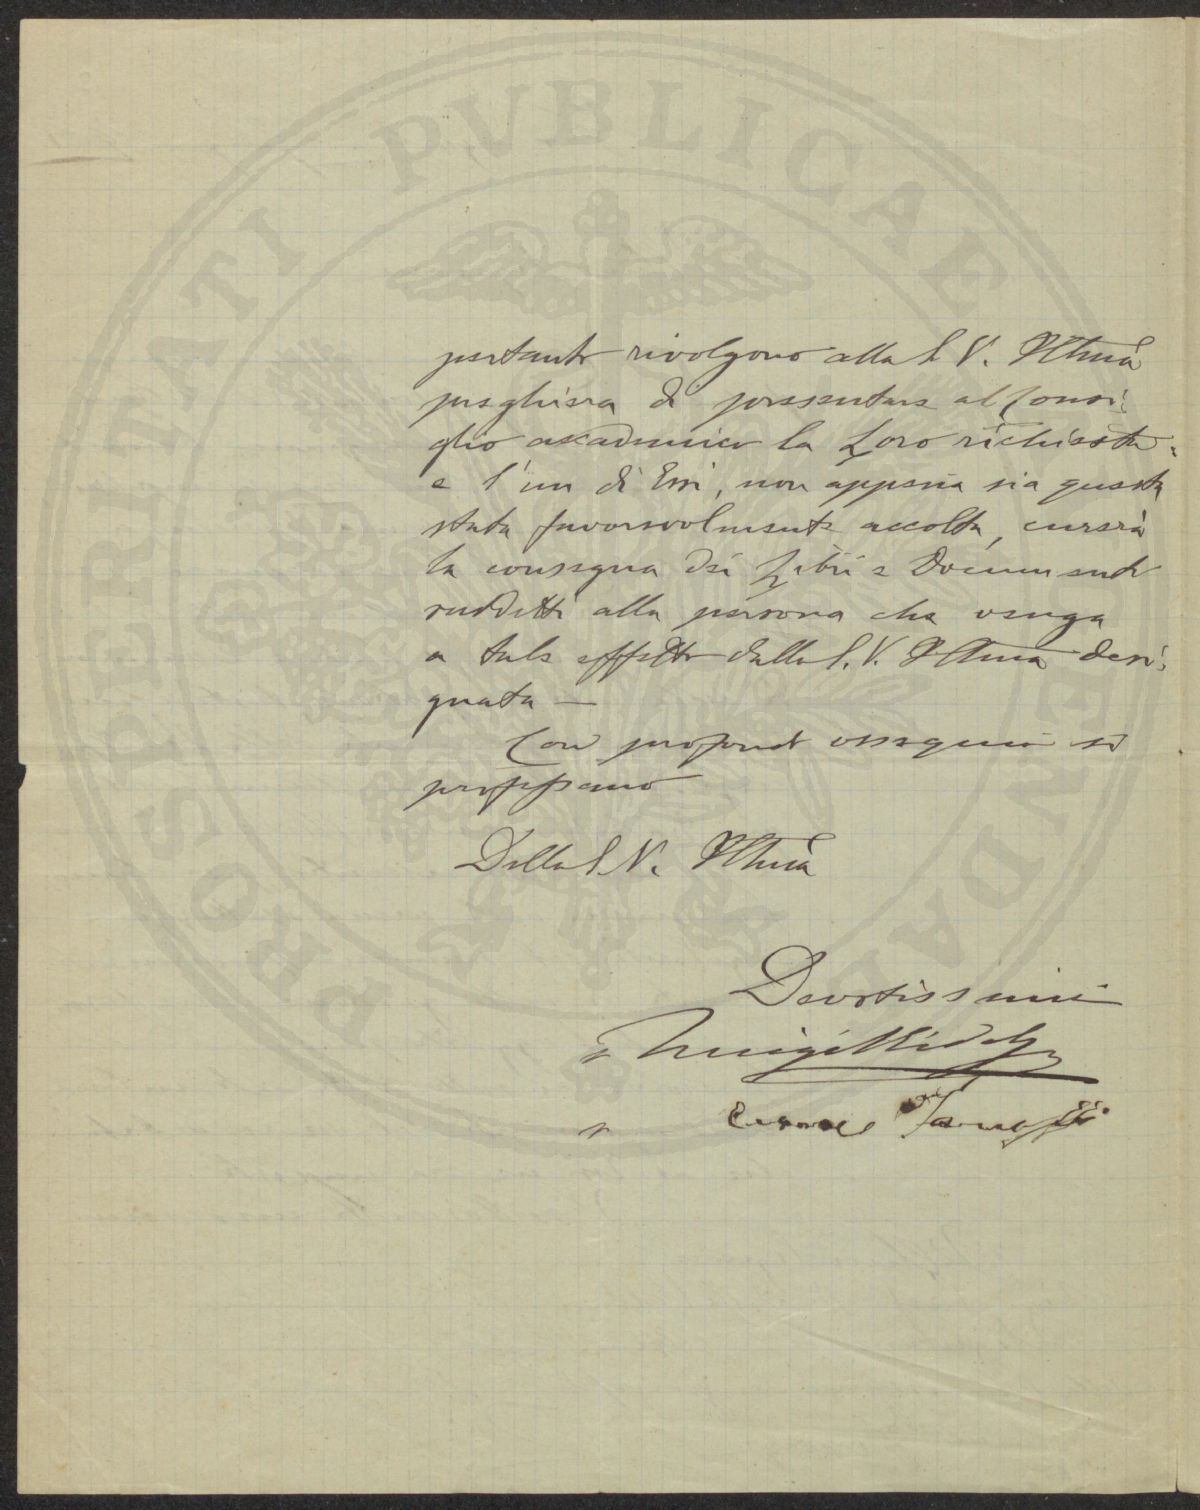 PROSPERITATI PVBLICAE AVGENDAE
pertanto rivolgono alla S. V. Illma
preghiera di presentare al Consi-
glio accademico la Loro richiesta:
e l'un di Essi, non appena sia questa
stata favorevolmente accolta, curerà
la consegna dei Libri e Documenti
suddetti alla persona che venga
a tale effetto dalla S. V. Illma desi-
gnata —
Con profondi ossequii si
professano
Della S. V. Illma
Devotissimi
Luigi